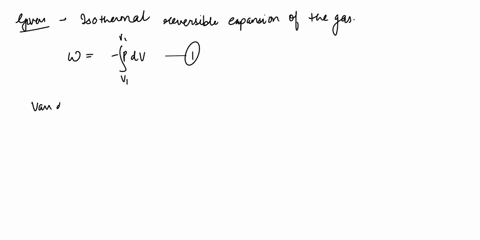 Given - Isothermal reversible expansion of the gas.
W = -∫_{V1}^{V1} P dV —— ①
Van d